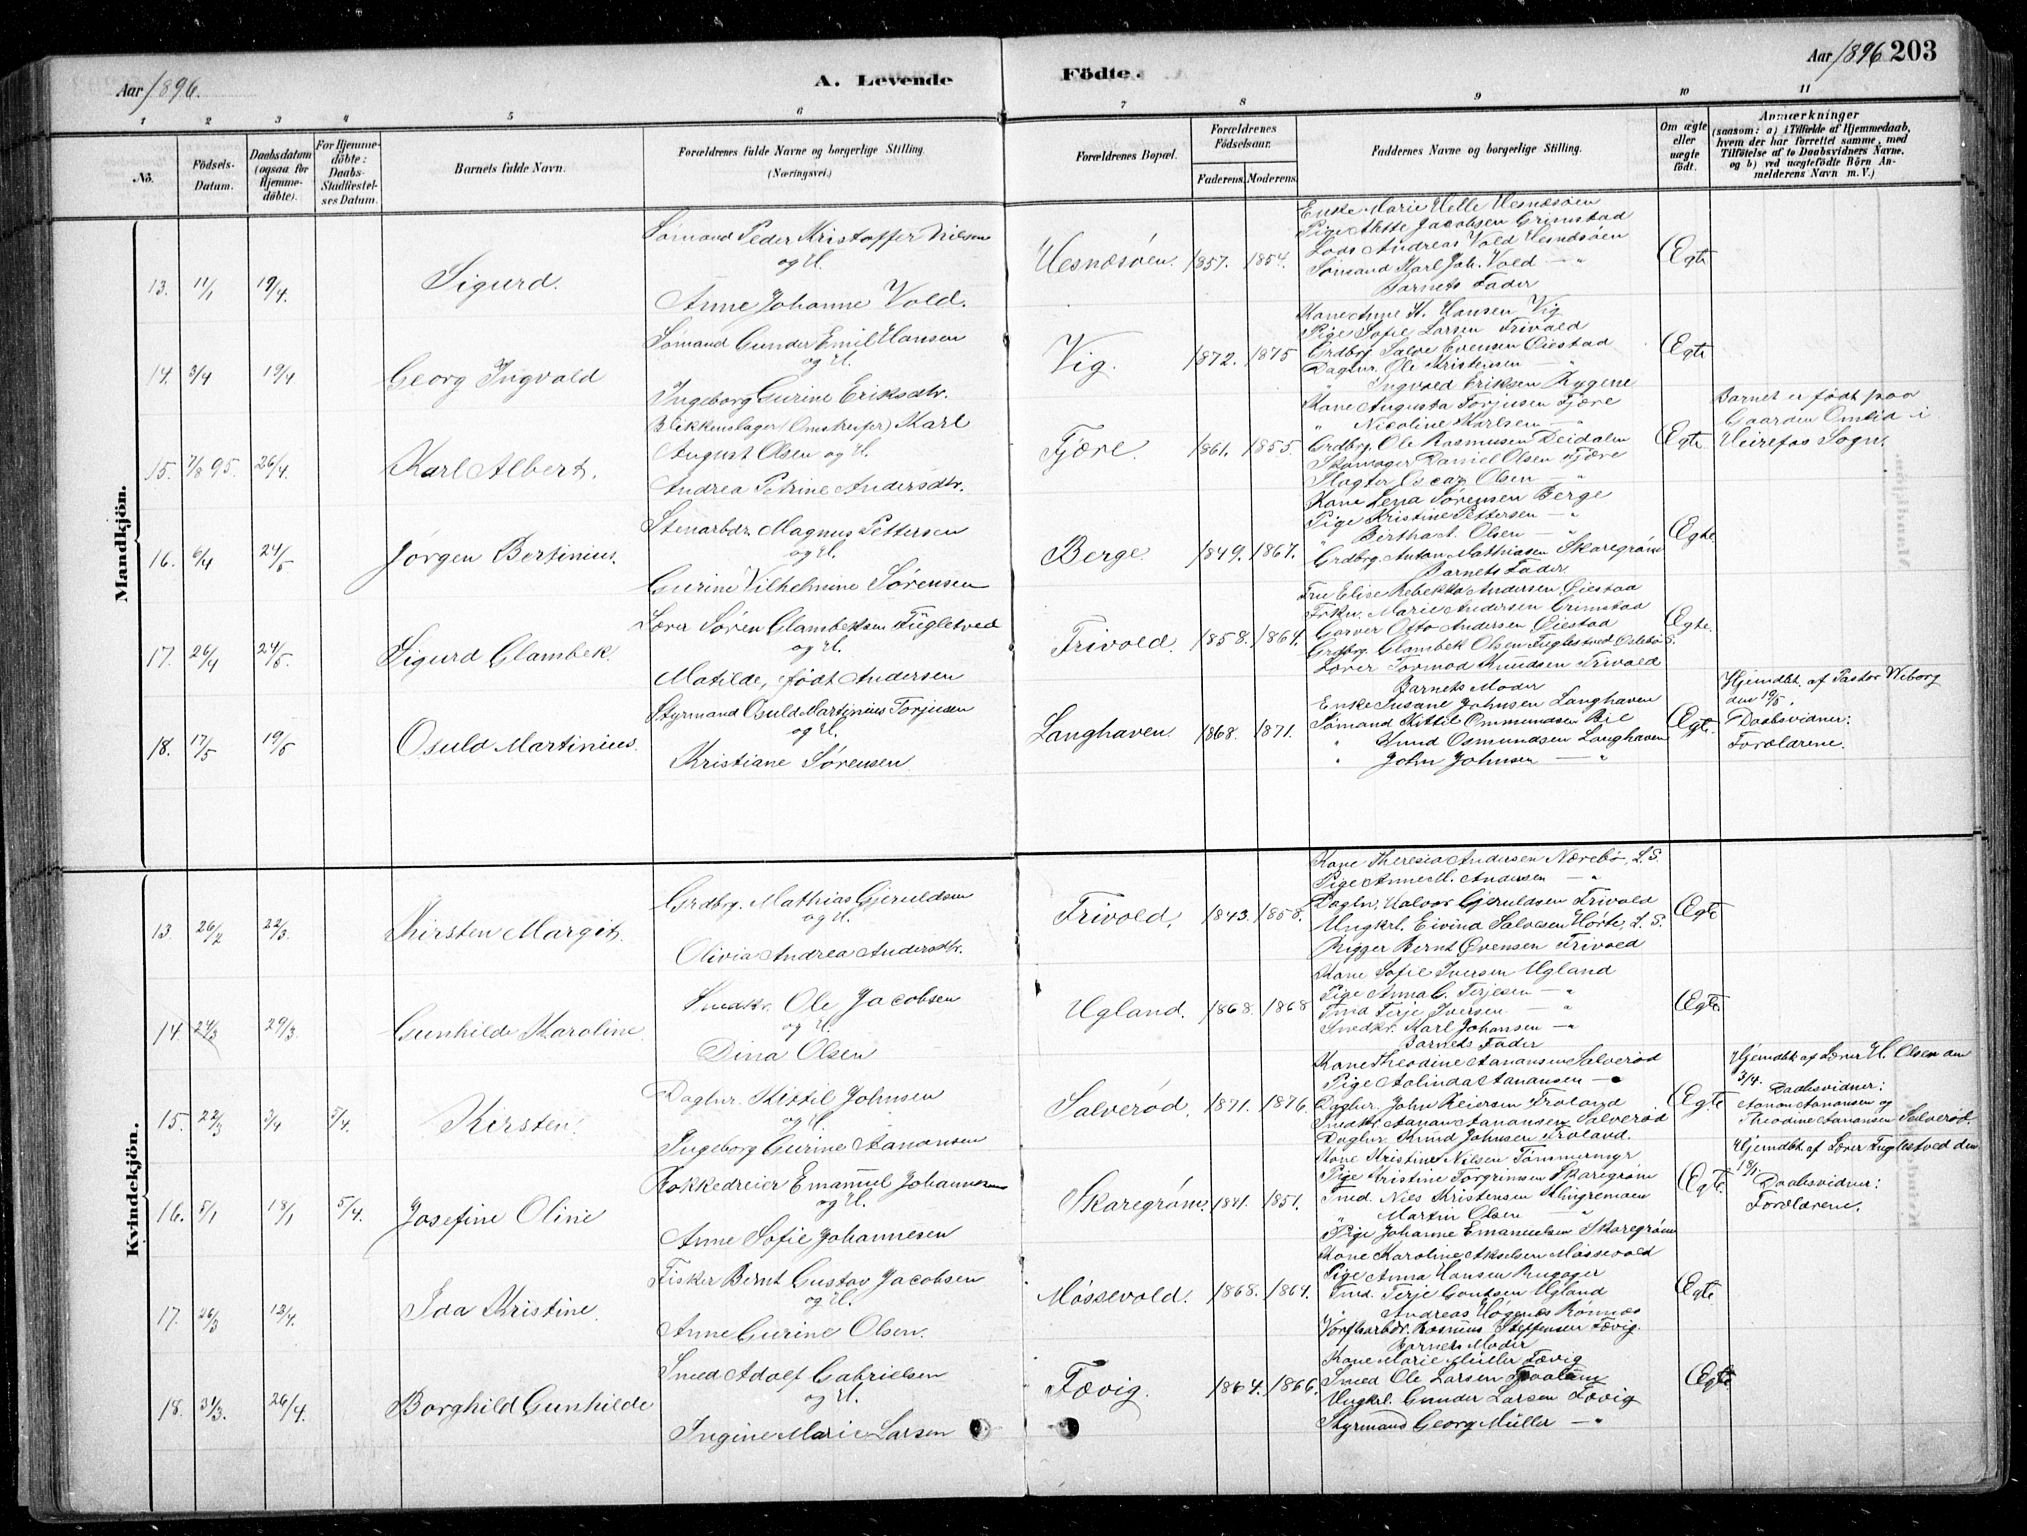 Aar 1896.
A. Levende Födte.
Aar 1896 203
1 2 3 4 5 6 7 8 9 10 11
No.
Födsels-Datum.
Daabsdatum (ogsaa for Hjemmedöbte).
For Hjemmedöbte: Daabs-Stadfæstelses Datum.
Barnets fulde Navn.
Forældrenes fulde Navne og borgerlige Stilling. (Næringsvei.)
Forældrenes Bopæl.
Forældrenes Födselsaar.
Faderens. Moderens.
Faddernes Navne og borgerlige Stilling.
Om ægte eller uægte födt.
Anmærkninger
(saasom: a) i Tilfælde af Hjemmedaab, hvem der har forrettet samme, med Tilföielse af to Daabsvidners Navne. og b) ved uægtefödte Börn Anmelderens Navn m. V.)
Mandkjön.
13. 11/1 19/4. Sigurd.
Sømand Peder Kristoffer Nilsen
og H.
Anne Johanne Vold.
Hesnæsøen. 1857. 1854.
Enke Marie Helle Hesnæsøen
Pige Mette Jacobsen Grimstad
Lods Andreas Vold Hesnæsøen
Sømand Karl Joh. Vold — "
Barnets Fader
Egte
14. 3/4 19/4 Georg Ingvald
Sømand Gunder Emil Hansen
og H.
Ingeborg Gurine Eriksdtr.
Vig. 1872. 1875
Kone Anne H. Hansen Vig
Pige Sofie Larsen Frivold
Grdbr. Salve Evensen Øiestad
Daglnr. Ole Kristensen "
" Ingvald Eriksen Rygene
Egte
15. 7/8 95. 26/4. Karl Albert.
Blikkenslager (Omstreifer) Karl
August Olsen og H.
Andrea Petrine Andersdtr.
Fjære. 1861. 1855.
Kone Augusta Torjusen Fjære
" Nicoline Karlsen — "
Grdbr. Ole Rasmussen Deidalen
Skomager Daniel Olsen Fjære
Slagter Oscar Olsen "
Egte
Barnet er født paa
Gaarden Omlid i
Heirefos Sogn.
16. 6/4 24/5 Jørgen Bertinius.
Stenarbdr. Magnus Pettersen
og H.
Gurine Vilhelmine Sørensen
Berge. 1849. 1867.
Kone Lena Sørensen Berge
Pige Kristine Pettersen — "
" Birtha A. Olsen — "
Grdbr. Anton Mathiasen Skaregrøm
Barnets Fader
Egte
17. 26/4 24/5. Sigurd Glambek.
Lærer Søren Glambeksen Fugletved
og H.
Matilde, født Andersen
Frivold. 1858. 1864.
Fru Elise Rebekka Andersen Øiestad
Frkn. Marie Andersen Grimstad
Garver Otto Andersen Øiestad
Grdbr. Glambek Olsen Fuglestved
Lærer Tormod Knudsen Frivold
Barnets Moder
Egte.
18. 17/5 19/5 Osuld Martinius.
Styrmand Osuld Martinius Torjusen
og H.
Kristiane Sørensen.
Langhaven. 1868. 1871.
Enke Susane Johnsen Langhaven
Sømand Kittil Ommundsen Bie
" Knud Osmundsen Langhaven
" John Johnsen — "
Egte.
Hjemdbt. af Pastor Wiborg
den 19/5.
Daabsvidner:
Forældrene.
Kvindekjön.
13. 26/2 22/3. Kirsten Margit.
Grdbr. Mathias Gjeruldsen
og H.
Olivia Andrea Andersdtr.
Frivold. 1843. 1858.
Kone Theresia Andersen Nærebø, L. S.
Pige Anne M. Andersen — "
Daglnr. Halvor Gjeruldsen Frivold
Ungkrl. Eivind Salvesen Hørte, L. S.
Rigger Bernt Øvensen Frivold
Egte
14. 24/3 29/3. Gunhilde Karoline
Smedkr. Ole Jacobsen
og H.
Dina Olsen
Ugland. 1868. 1868
Kone Sofie Iversen Ugland
Pige Anna C. Terjesen — "
Tmd. Terje Iversen — "
Smedkr. Karl Johansen — "
Barnets Fader
Egte
15. 22/3 3/4 5/4. Kirsten.
Daglnr. Kittil Johnsen
og H.
Ingeborg Gurine Aanonsen
Salverød. 1871. 1876.
Kone Theodine Aanansen Salverød
Pige Aolinda Aanansen — "
Daglnr. John Reiersen Froland
Smedkr. Aanan Aanansen Salverød
Daglnr. Knud Johnsen Froland.
Egte
Hjemdbt. af Lærer H. Olsen den
3/4. Daabsvidner:
Aanon Aanansen og
Theodine Aanansen Salverød.
16. 5/1 18/1 5/4. Josefine Oline
Blokkedreier Emanuel Johannesen
og H.
Anne Sofie Johannesen
Skaregrøm. 1841. 1851.
Kone Kristine Nilsen Tømmermyr
Pige Kristine Torgrimsen Skaregrøm
Smed. Niels Kristensen Klingremoen
" Martin Olsen "
Pige Johanne Emanuelsen Skaregrøm
Egte.
Hjemdbt af Lærer Fuglestved den
18/1. Daabsvidner:
Forældrene.
17. 26/3 12/4. Ida Kristine.
Fisker Bernt Gustav Jacobsen
og H.
Anne Gurine Olsen.
Møssevold. 1868. 1864.
Kone Karoline Akselsen Møssevold
Pige Anna Hansen Rugager
Tmd. Terje Guntsen Ugland
" Andreas Høgenes Rønnes
Værftsarbdr. Rasmus Steffensen Fævig.
Barnets Moder
Egte
18. 31/3. 26/4. Borghild Gunhilde
Smed Adolf Gabrielsen
og H.
Ingine Marie Larsen
Fævig. 1864. 1866.
Kone Marie Müller Fævig
Smed Ole Larsen
Ungkrl. Gunder Larsen Fævig
Styrmand Georg Müller — "
Egte